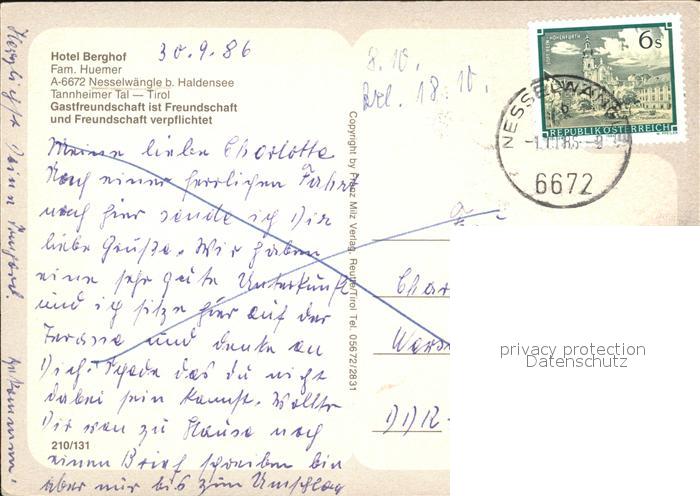 Hotel Berghof
30.9.86
Fam. Huemer
A-6672 Nesselwängle b. Haldensee
Tannheimer Tal — Tirol
Gastfreundschaft ist Freundschaft
und Freundschaft verpflichtet
Meine liebe Charlotte
Nach einer herrlichen Fahrt
nach hier sende ich Dir
liebe Grüße. Wir haben
eine sehr gute Unterkunft
und ich sitze hier auf der
Terasse und denke an
Dich. Schade das du nicht
dabei sein kannst. Wollte
Dir von zu Hause noch
einen Brief schreiben bin
aber nur bis zum Umschlag
210/131
gekommen.
Herzlichst Deine
Copyright by Franz Milz Verlag, Reutte/Tirol Tel. 05672/2831
8.10.
18.10.
6 s
REPUBLIK ÖSTERREICH
NESSELWÄNGLE
6672
Char
DDR
privacy protection
Datenschutz